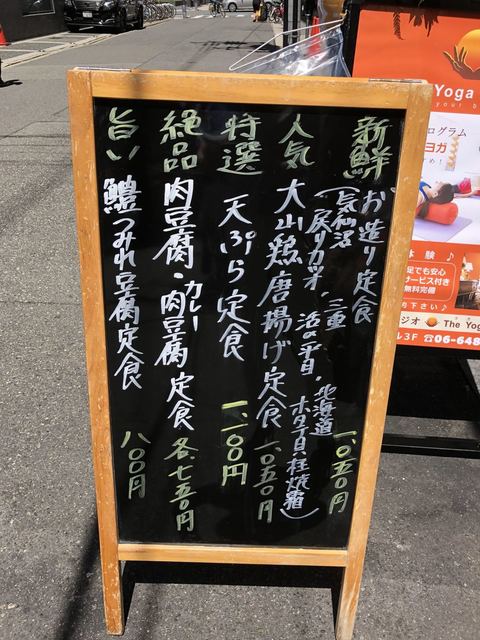 新鮮 お造り定食 一、〇五〇円
(気仙沼 戻りカツオ、三重 活〆平目、北海道 ホタテ貝柱焼霜)
人気 大山鶏唐揚げ定食 一、〇五〇円
特選 天ぷら定食 一、一〇〇円
絶品 肉豆腐・カレー肉豆腐定食 各、七五〇円
旨い 鱧つみれ豆腐定食 八〇〇円
Yoga
your b
ログラム
ヨガ
体験♪
足でも安心
サービス付き
無料完備
下さい♪
ジオ The Yog
ル3F ☎06-648